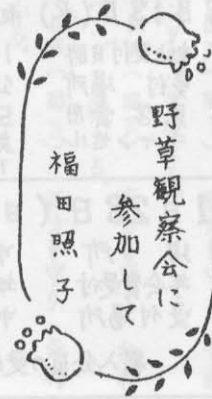 野草観察会に
参加して
福田照子